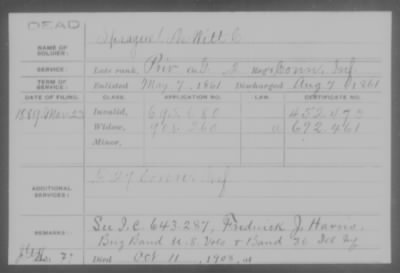 DEAD
NAME OF SOLDIER: Sprague, DeWitt C
SERVICE: Late rank, Priv Co. Reg't Conn. Inf.
TERM OF SERVICE: Enlisted May 7, 1861 Discharged Aug 7, 1861
DATE OF FILING. CLASS. APPLICATION NO. LAW. CERTIFICATE NO.
1889 Mar 23 Invalid, 695.680 452.473
Widow, 905.260 672.461
Minor,
ADDITIONAL SERVICES: Conn. Inf
REMARKS: See I.C. 643.287, Fredrick J. Harris.
Brig Band U.S. Vols & Band
Died Oct 11, 1908, at